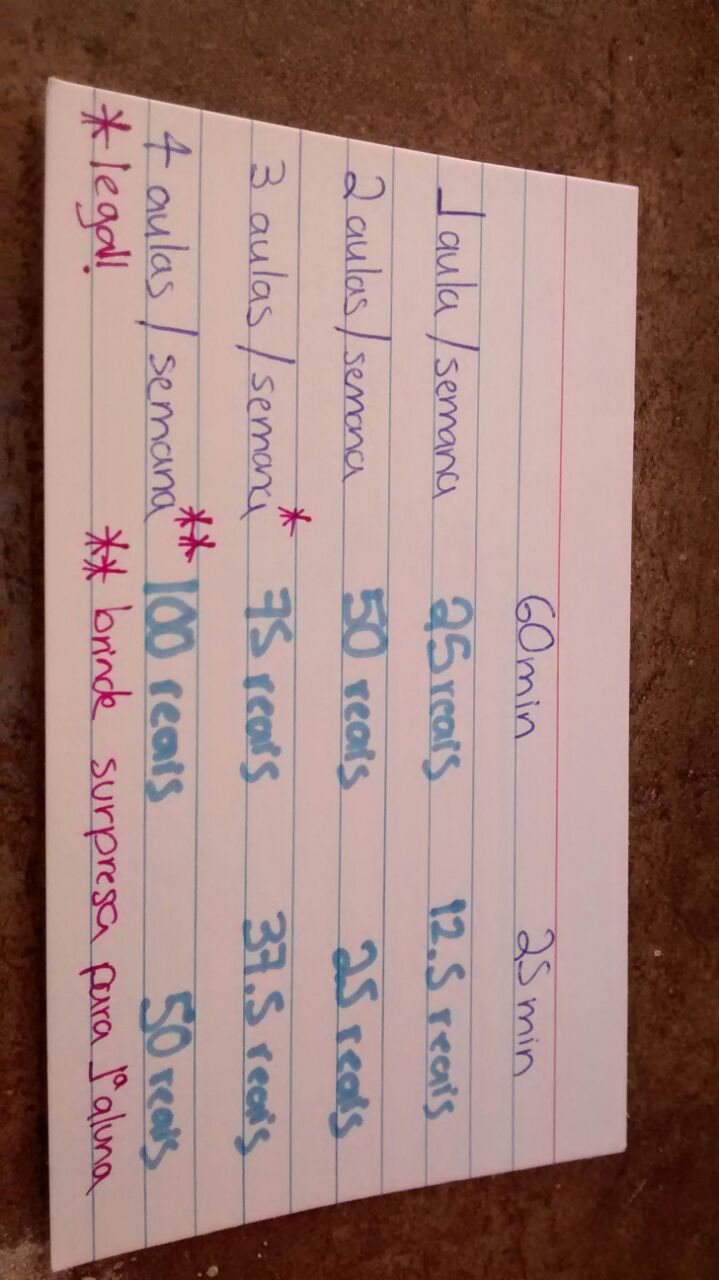 60min 25min
1 aula/semana 25 reais 12.5 reais
2 aulas/semana 50 reais 25 reais
3 aulas/semana* 75 reais 37.5 reais
4 aulas/semana** 100 reais 50 reais
*legal! **brinde surpresa para 1ª aluna